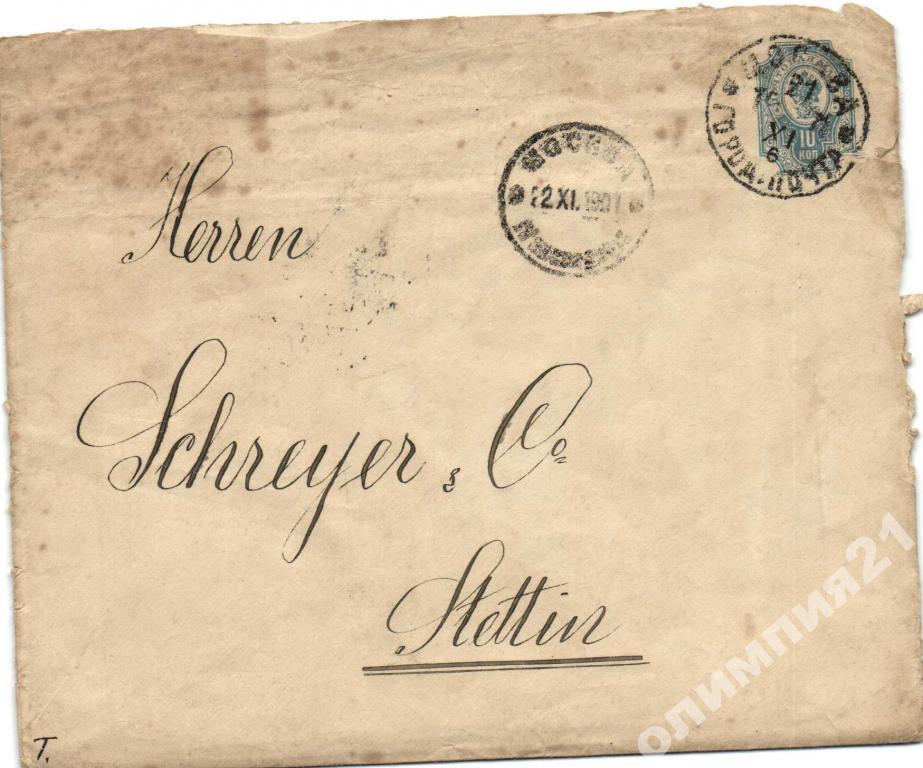 МОСКВА
21
XI
6
ГОРОД. ПОЧТА
10
КОП
МОСКВА
22 XI. 1901
Herren
Schreyer & Co
Stettin
T.
олимпия21